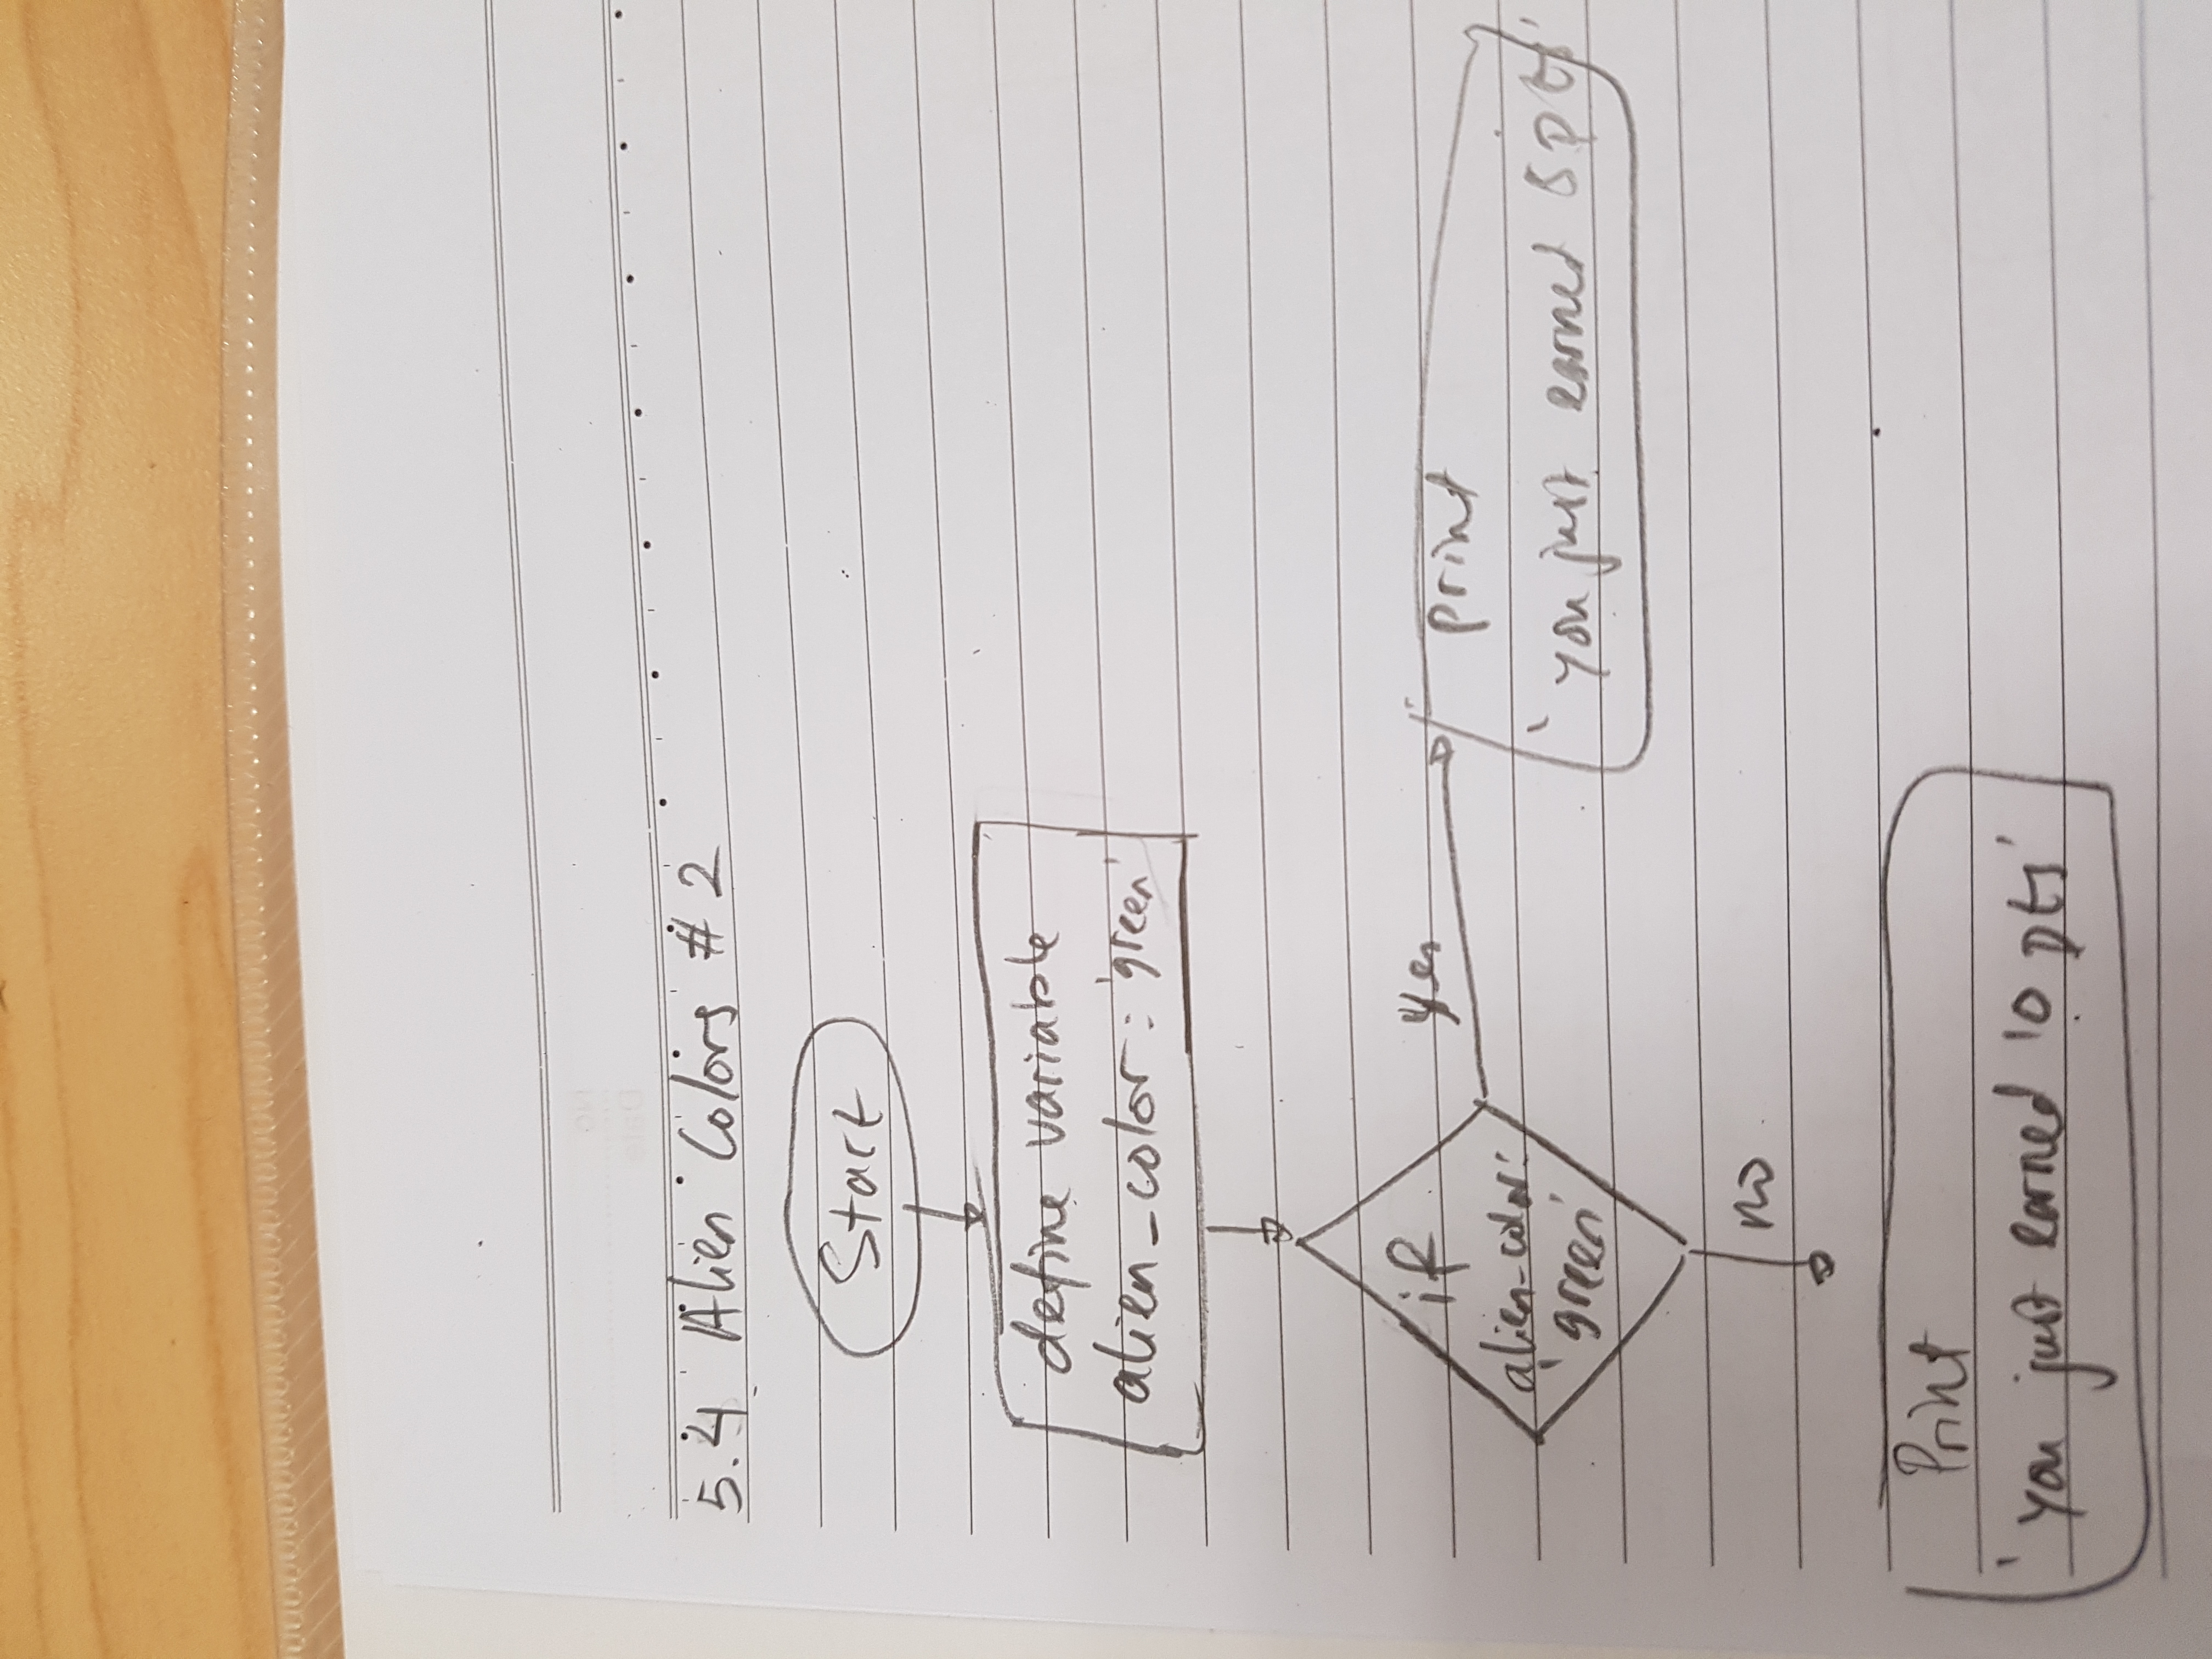 5.4 Alien Colors #2
Start
define variable
alien_color: 'green'
if
alien-color:
'green'
yes
print
'you just earned 5 pts'
no
Print
'you just earned 10 pts'